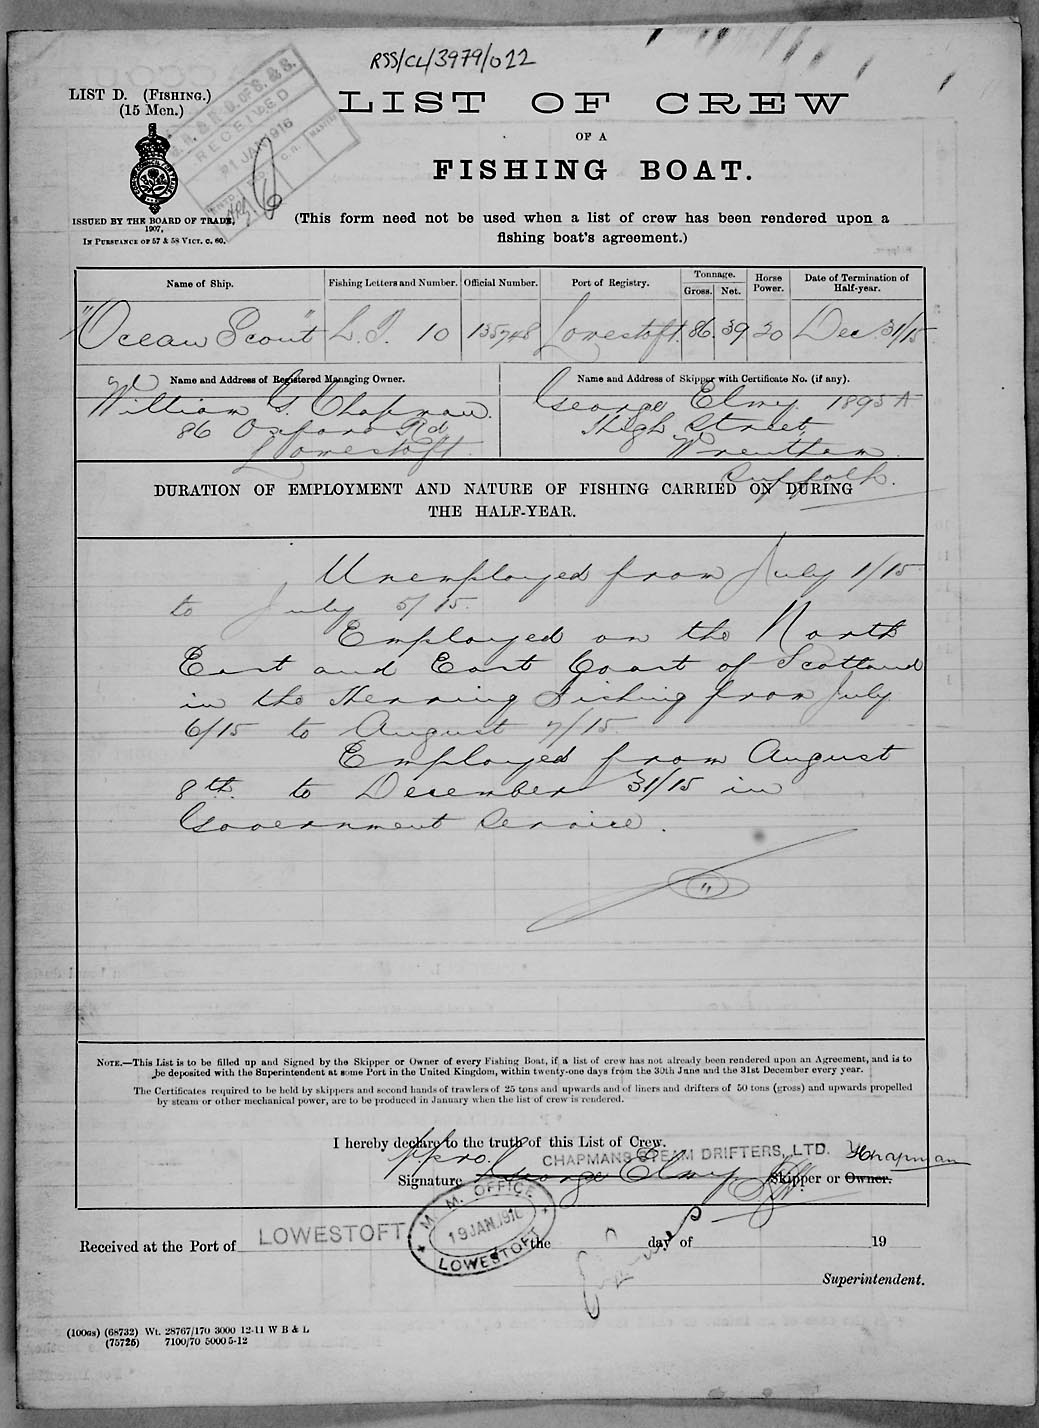 RSS/CL/3979/022
LIST D. (FISHING.)
(15 Men.)
RECEIVED
21 JAN 1916
LIST OF CREW
OF A
FISHING BOAT.
ISSUED BY THE BOARD OF TRADE,
1907,
IN PURSUANCE OF 57 & 58 VICT. C. 60.
(This form need not be used when a list of crew has been rendered upon a
fishing boat's agreement.)
Name of Ship. Fishing Letters and Number. Official Number. Port of Registry. Tonnage. Gross. Net. Horse Power. Date of Termination of Half-year.
"Ocean Scout" L.T. 10 135748 Lowestoft. 86. 39 20 Dec. 31/15
Name and Address of Registered Managing Owner. Name and Address of Skipper with Certificate No. (if any).
William G. Chapman. George Elmy. 1895 A
86 Oxford Rd High Street
Lowestoft. Wrentham.
Suffolk.
DURATION OF EMPLOYMENT AND NATURE OF FISHING CARRIED ON DURING
THE HALF-YEAR.
Unemployed from July 1/15
to July 5/15.
Employed on the North
East and East Coast of Scotland
in the Herring Fishing from July
6/15 to August 7/15.
Employed from August
8th. to December 31/15 in
Government Service.
NOTE.—This List is to be filled up and Signed by the Skipper or Owner of every Fishing Boat, if a list of crew has not already been rendered upon an Agreement, and is to
be deposited with the Superintendent at some Port in the United Kingdom, within twenty-one days from the 30th June and the 31st December every year.
The Certificates required to be held by skippers and second hands of trawlers of 25 tons and upwards and of liners and drifters of 50 tons (gross) and upwards propelled
by steam or other mechanical power, are to be produced in January when the list of crew is rendered.
I hereby declare to the truth of this List of Crew.
ppro. CHAPMANS STEAM DRIFTERS, LTD. Chapman
Signature George Elmy. Skipper or Owner.
M. M. OFFICE
19 JAN. 1916
LOWESTOFT
Received at the Port of LOWESTOFT the day of 19
Superintendent.
(100GS) (68732) Wt. 28767/170 3000 12-11 W B & L
(75726) 7100/70 5000 5-12